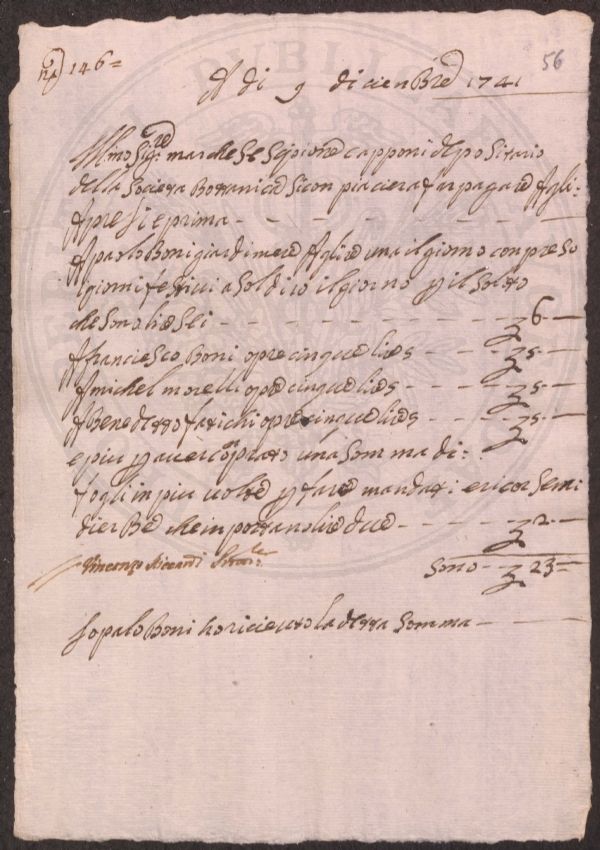 no 146=
56
A di 9 diciembre 1741
Illmo Sigre marchese Scipione capponi depositario
della Societa Bottanica Si con piacera far pagare Agli
Apresie prima
A paolo Boni giardiniere A lire una il giorno conpreso
i giorni festivi a Soldi 10 il giorno p il Solito
che Sono lire Sei 6
A francesco Boni opre cinque lire 5
A michel morelli opre cinque lire 5
A Benedetto fatichi opre cinque lire 5
e piu p aver coprato una Somma di
fogli in piu volte p fare mandati e ricor Semi
di erBe che in portano lire due 2
Vincenzo Riccardi
Sono 23=
Io palo Boni ho riceuto la detta Somma